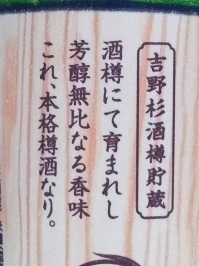 吉野杉酒樽貯蔵
酒樽にて育まれし
芳醇無比なる香味
これ、本格樽酒なり。